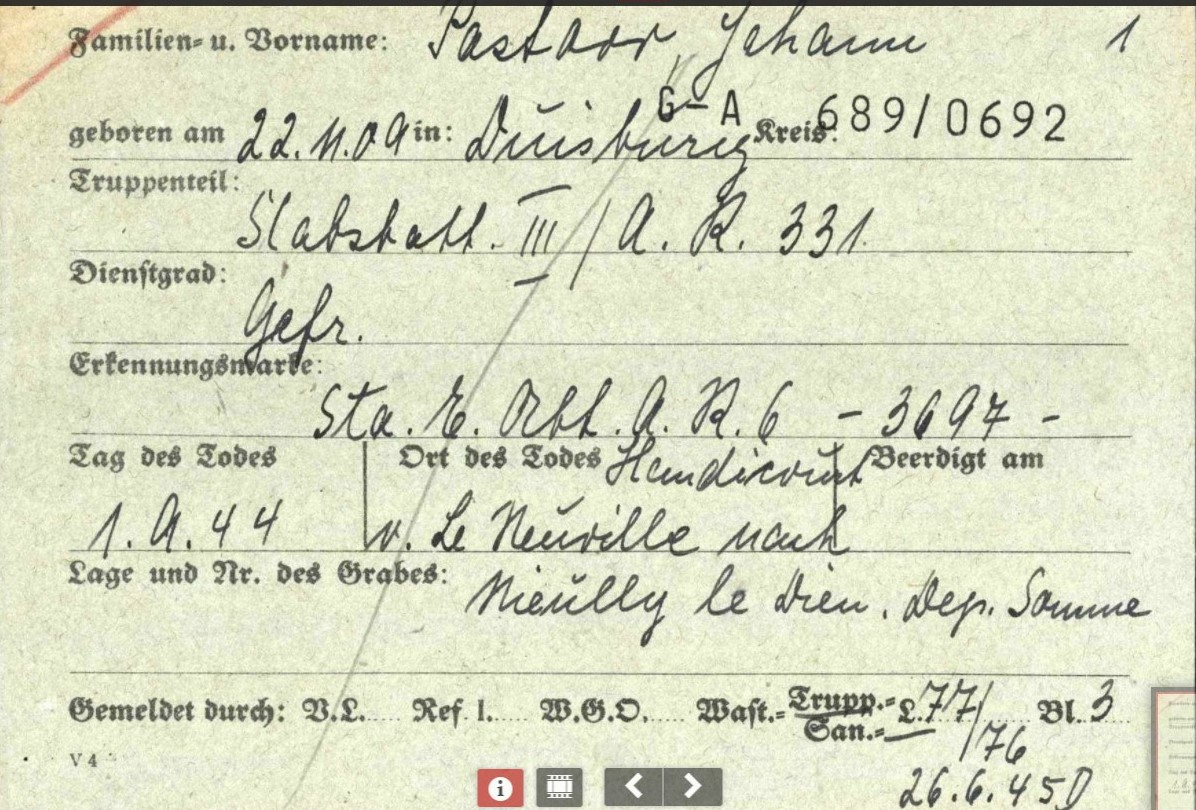 Familien- u. Vorname: Pastoor, Johann 1
G-A 689/0692
geboren am 22.11.09 in: Duisburg Kreis:
Truppenteil:
Stabsbatt. III / A. R. 331.
Dienstgrad:
Gefr.
Erkennungsmarke:
Sta. E. Abt. A. R. 6 - 3697 -
Tag des Todes Ort des Todes Beerdigt am
Handicourt
1.9.44 v. Le Neuville nach
Lage und Nr. des Grabes: Nieully le Dien. Dep. Somme
Gemeldet durch: V.L. Ref. 1. W.G.O. Wast.= Trupp.= San.= L. 77/76 Bl. 3
V 4
26.6.45